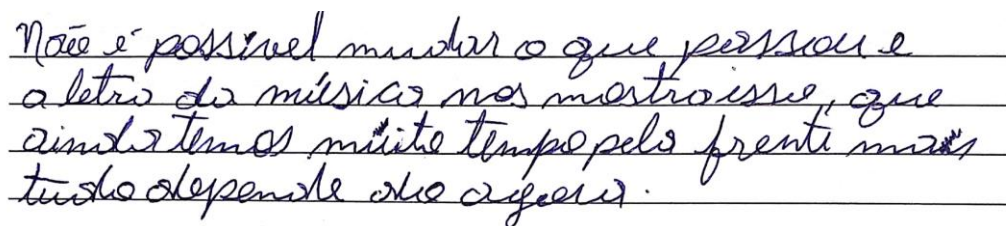 Não é possivel mudar o que passou e
a letra da música nos mostra isso, que
ainda temos muito tempo pela frente mais
tudo depende do agora.